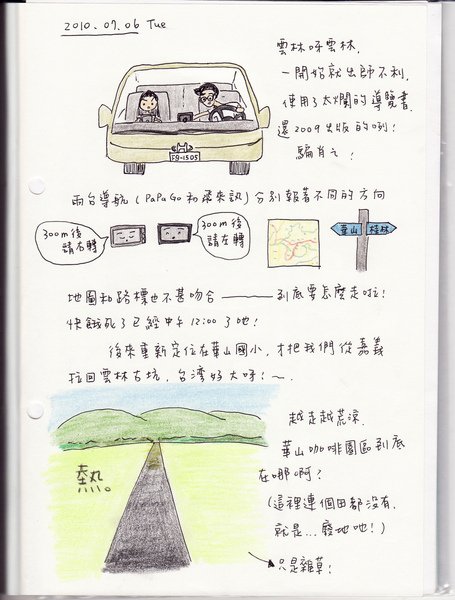 2010.07.06 Tue
雲林呀雲林,
一開始就出師不利,
使用了太爛的導覽書,
還2009出版的咧!
騙肖ㄟ!
F9-1505
兩台導航(PaPaGo和飛來訊)分別報著不同的方向
300m後
請右轉
300m後
請左轉
華山
桂林
地圖和路標也不甚吻合———到底要怎麼走啦!
快餓死了已經中午12:00了吔!
後來重新定位在華山國小,才把我們從嘉義
拉回雲林古坑,台灣好大呀!~.
越走越荒涼
華山咖啡園區到底
在哪啊?
(這裡連個田都沒有,
就是...廢地吔!)
熱。
只是雜草!